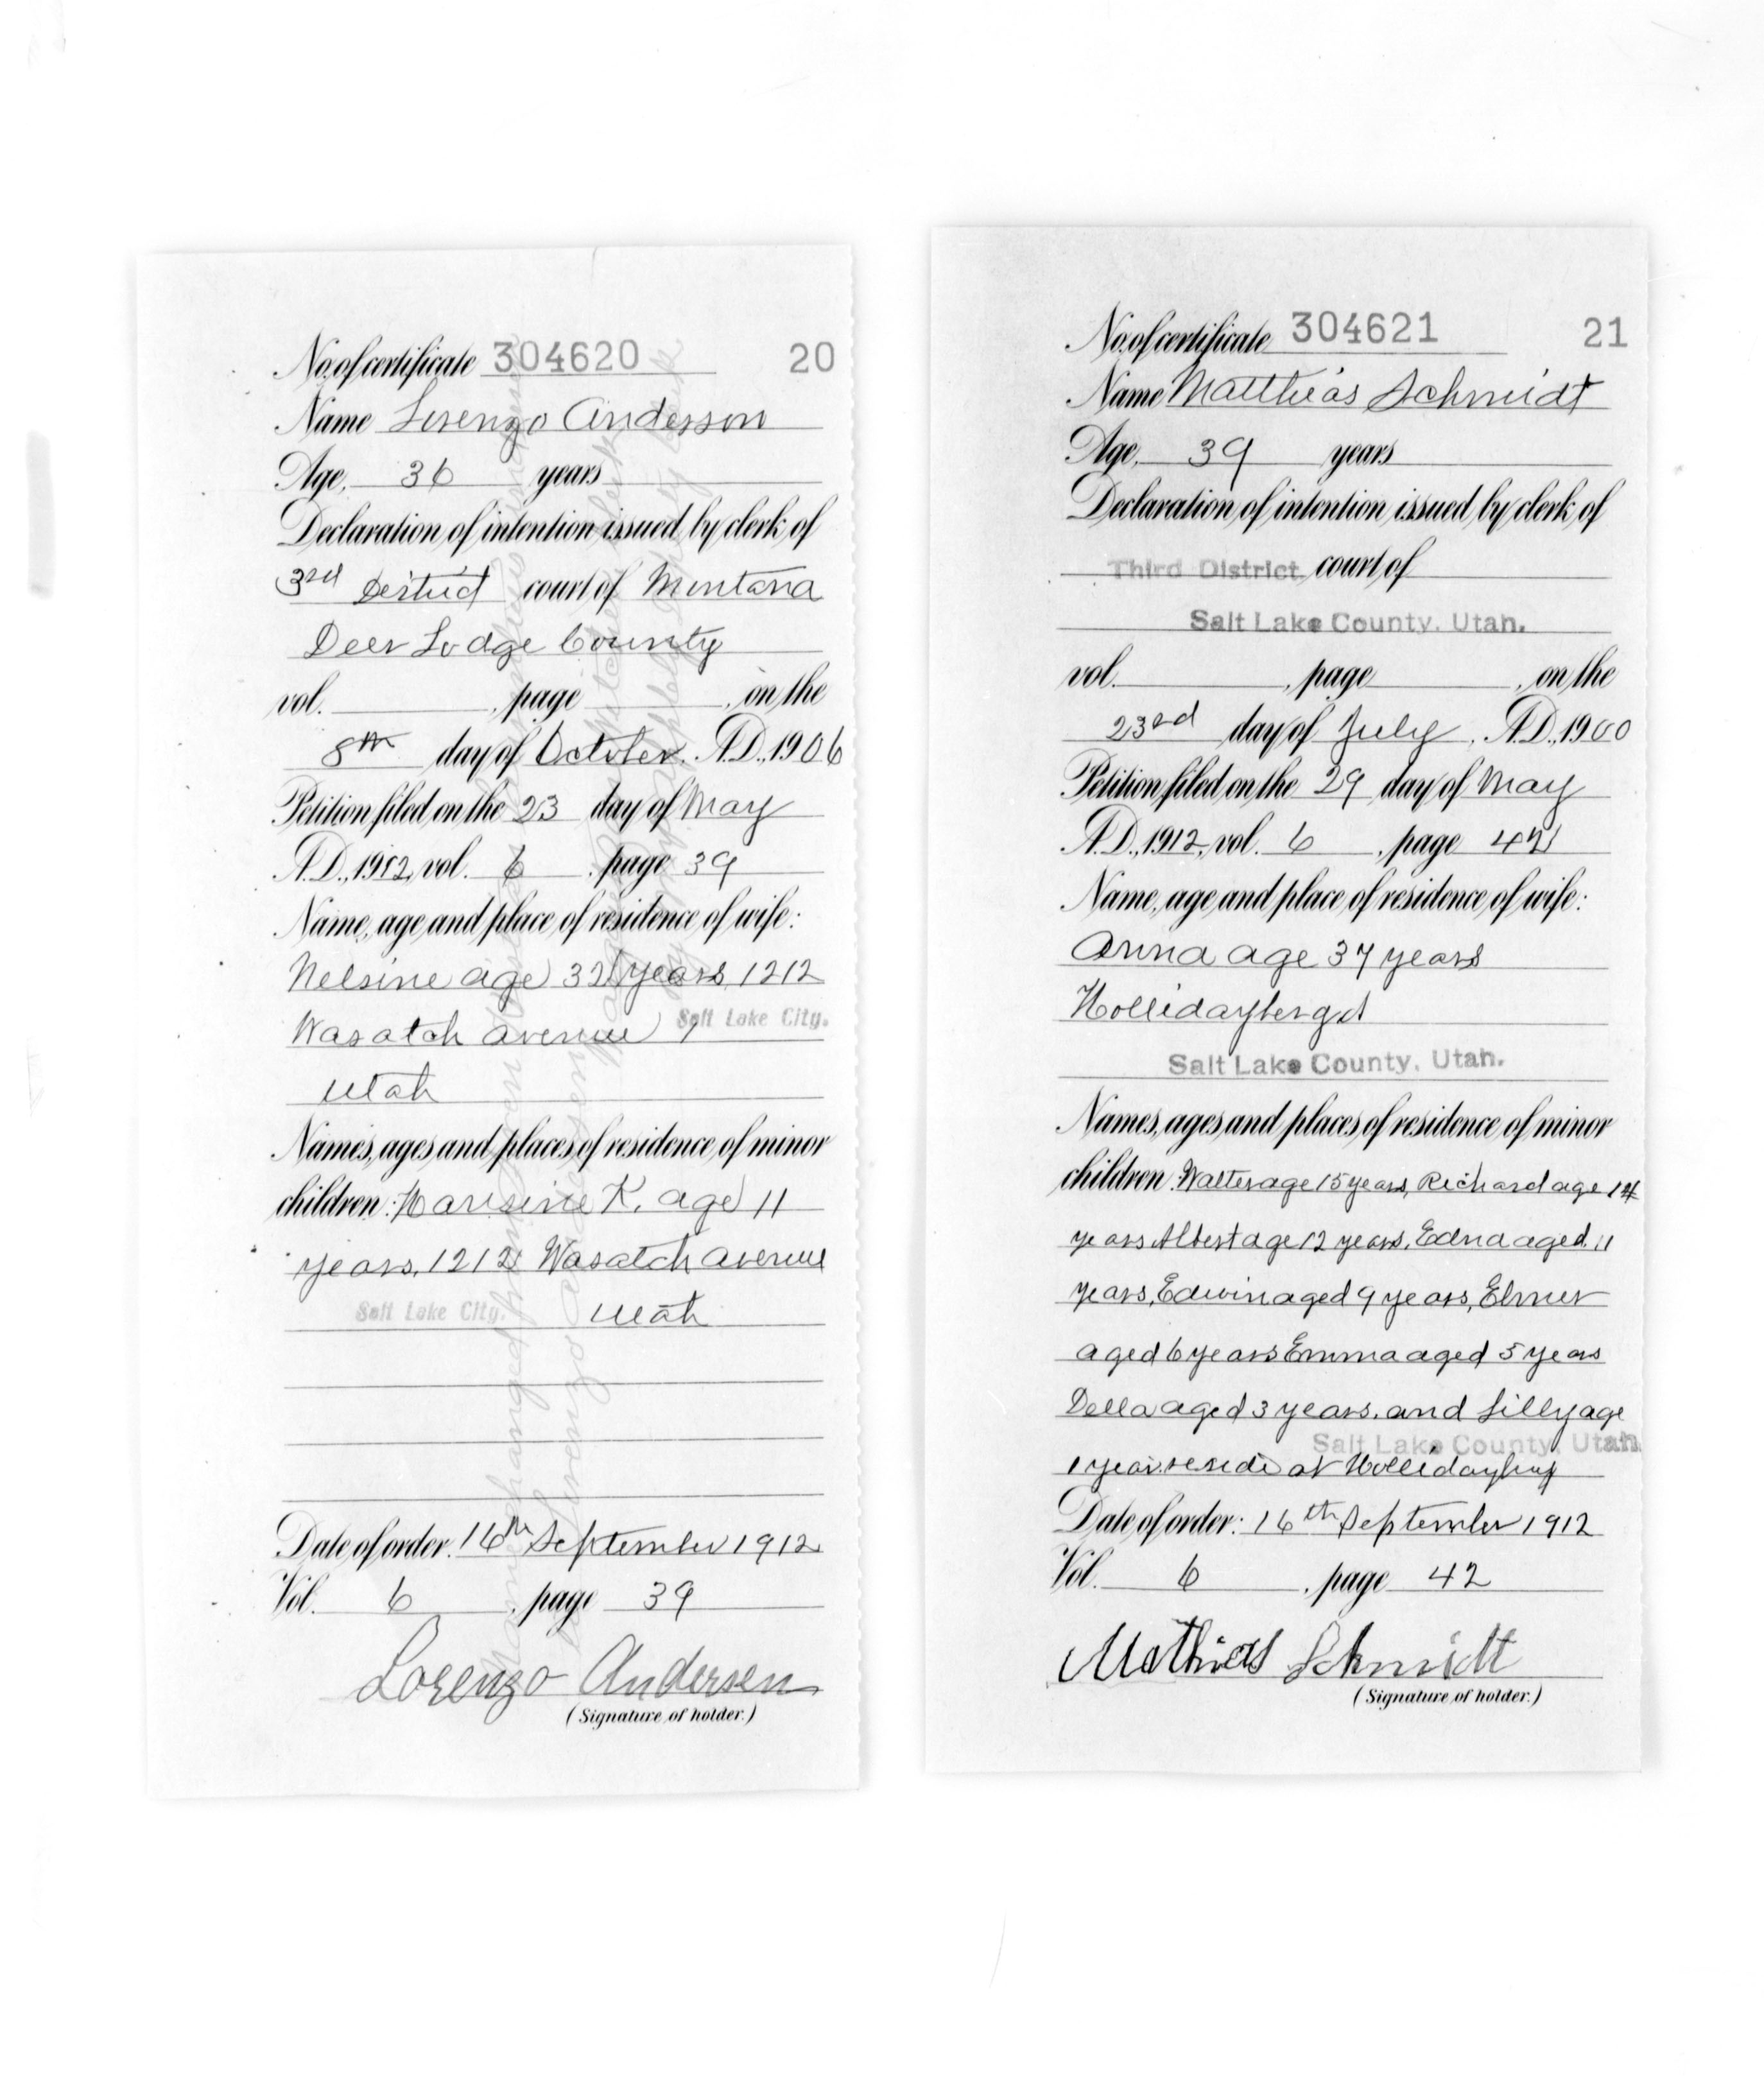 No. of certificate 304620 20
Name Lorenzo Anderson
Age, 36 years
Declaration of intention issued by clerk of
3rd District court of Montana
Deer Lodge County
vol. , page , on the
8th day of October, A.D., 1906
Petition filed on the 23 day of May
A.D., 1912, vol. 6 , page 39
Name, age and place of residence of wife:
Nelsine age 32 years, 1212
Wasatch Avenue, Salt Lake City.
Utah
Names, ages and places of residence of minor
children: K. age 11
years, 1212 Wasatch Avenue
Salt Lake City. Utah
Date of order: 16th September 1912
Vol. 6 , page 39
Lorenzo Andersen
(Signature of holder.)
No. of certificate 304621 21
Name Matthias Schmidt
Age, 39 years
Declaration of intention issued by clerk of
Third District court of
Salt Lake County, Utah.
vol. , page , on the
23rd day of July, A.D., 1900
Petition filed on the 29 day of May
A.D., 1912, vol. 6 , page 42
Name, age and place of residence of wife:
Anna age 37 years
Salt Lake County, Utah.
Names, ages and places of residence of minor
children: Walter age 15 years, Richard age 14
years Albert age 12 years, Edna aged 11
years, Edwin aged 9 years, Elmer
aged 6 years Emma aged 5 years
Della aged 3 years, and Lilly age
Salt Lake County, Utah
1 year reside at Hollidayburg
Date of order: 16th September 1912
Vol. 6 , page 42
Mathias Schmidt
(Signature of holder.)